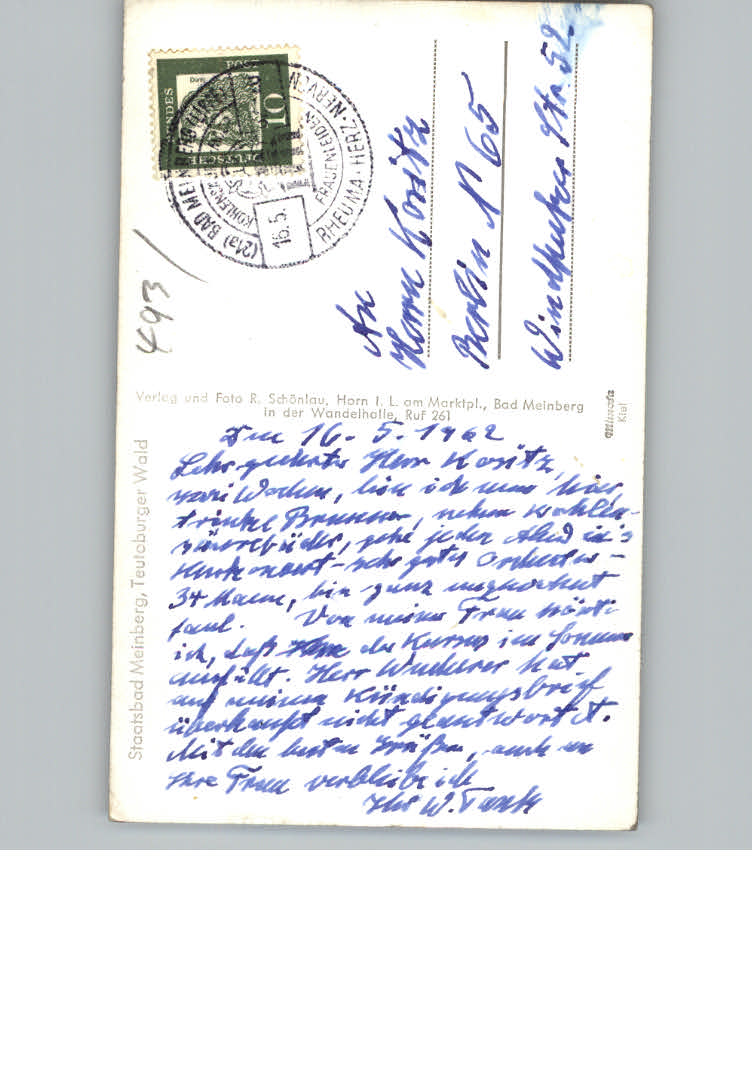 DEUTSCHE BUNDESPOST
10
(21a) BAD MEINBERG (LIPPE)
RHEUMA · HERZ · NERVEN
FRAUENLEIDEN
16.5.
493/
An
Herrn Kositz
Berlin N 65
Str. 52
Verlag und Foto R. Schönlau, Horn i. L. am Marktpl., Bad Meinberg
in der Wandelhalle, Ruf 261
Kiel
Staatsbad Meinberg, Teutoburger Wald
Den 16. 5. 1962
Sehr geehrter Herr Kositz,
zwei Wochen bin ich nun hier,
trinke Brunnen, nehme Kohlen-
säurebäder, gehe jeden Abend in's
Kurkonzert – sehr gutes Orchester –
34 Mann, bin ganz ungewohnt
faul. Von meiner Frau hörte
ich, daß der Kursus im Sommer
ausfällt. Herr Wuderer hat
auf meinen Kündigungsbrief
überhaupt nicht geantwortet.
Mit den besten Grüßen, auch an
Ihre Frau verbleibe ich
Ihr W. Tank